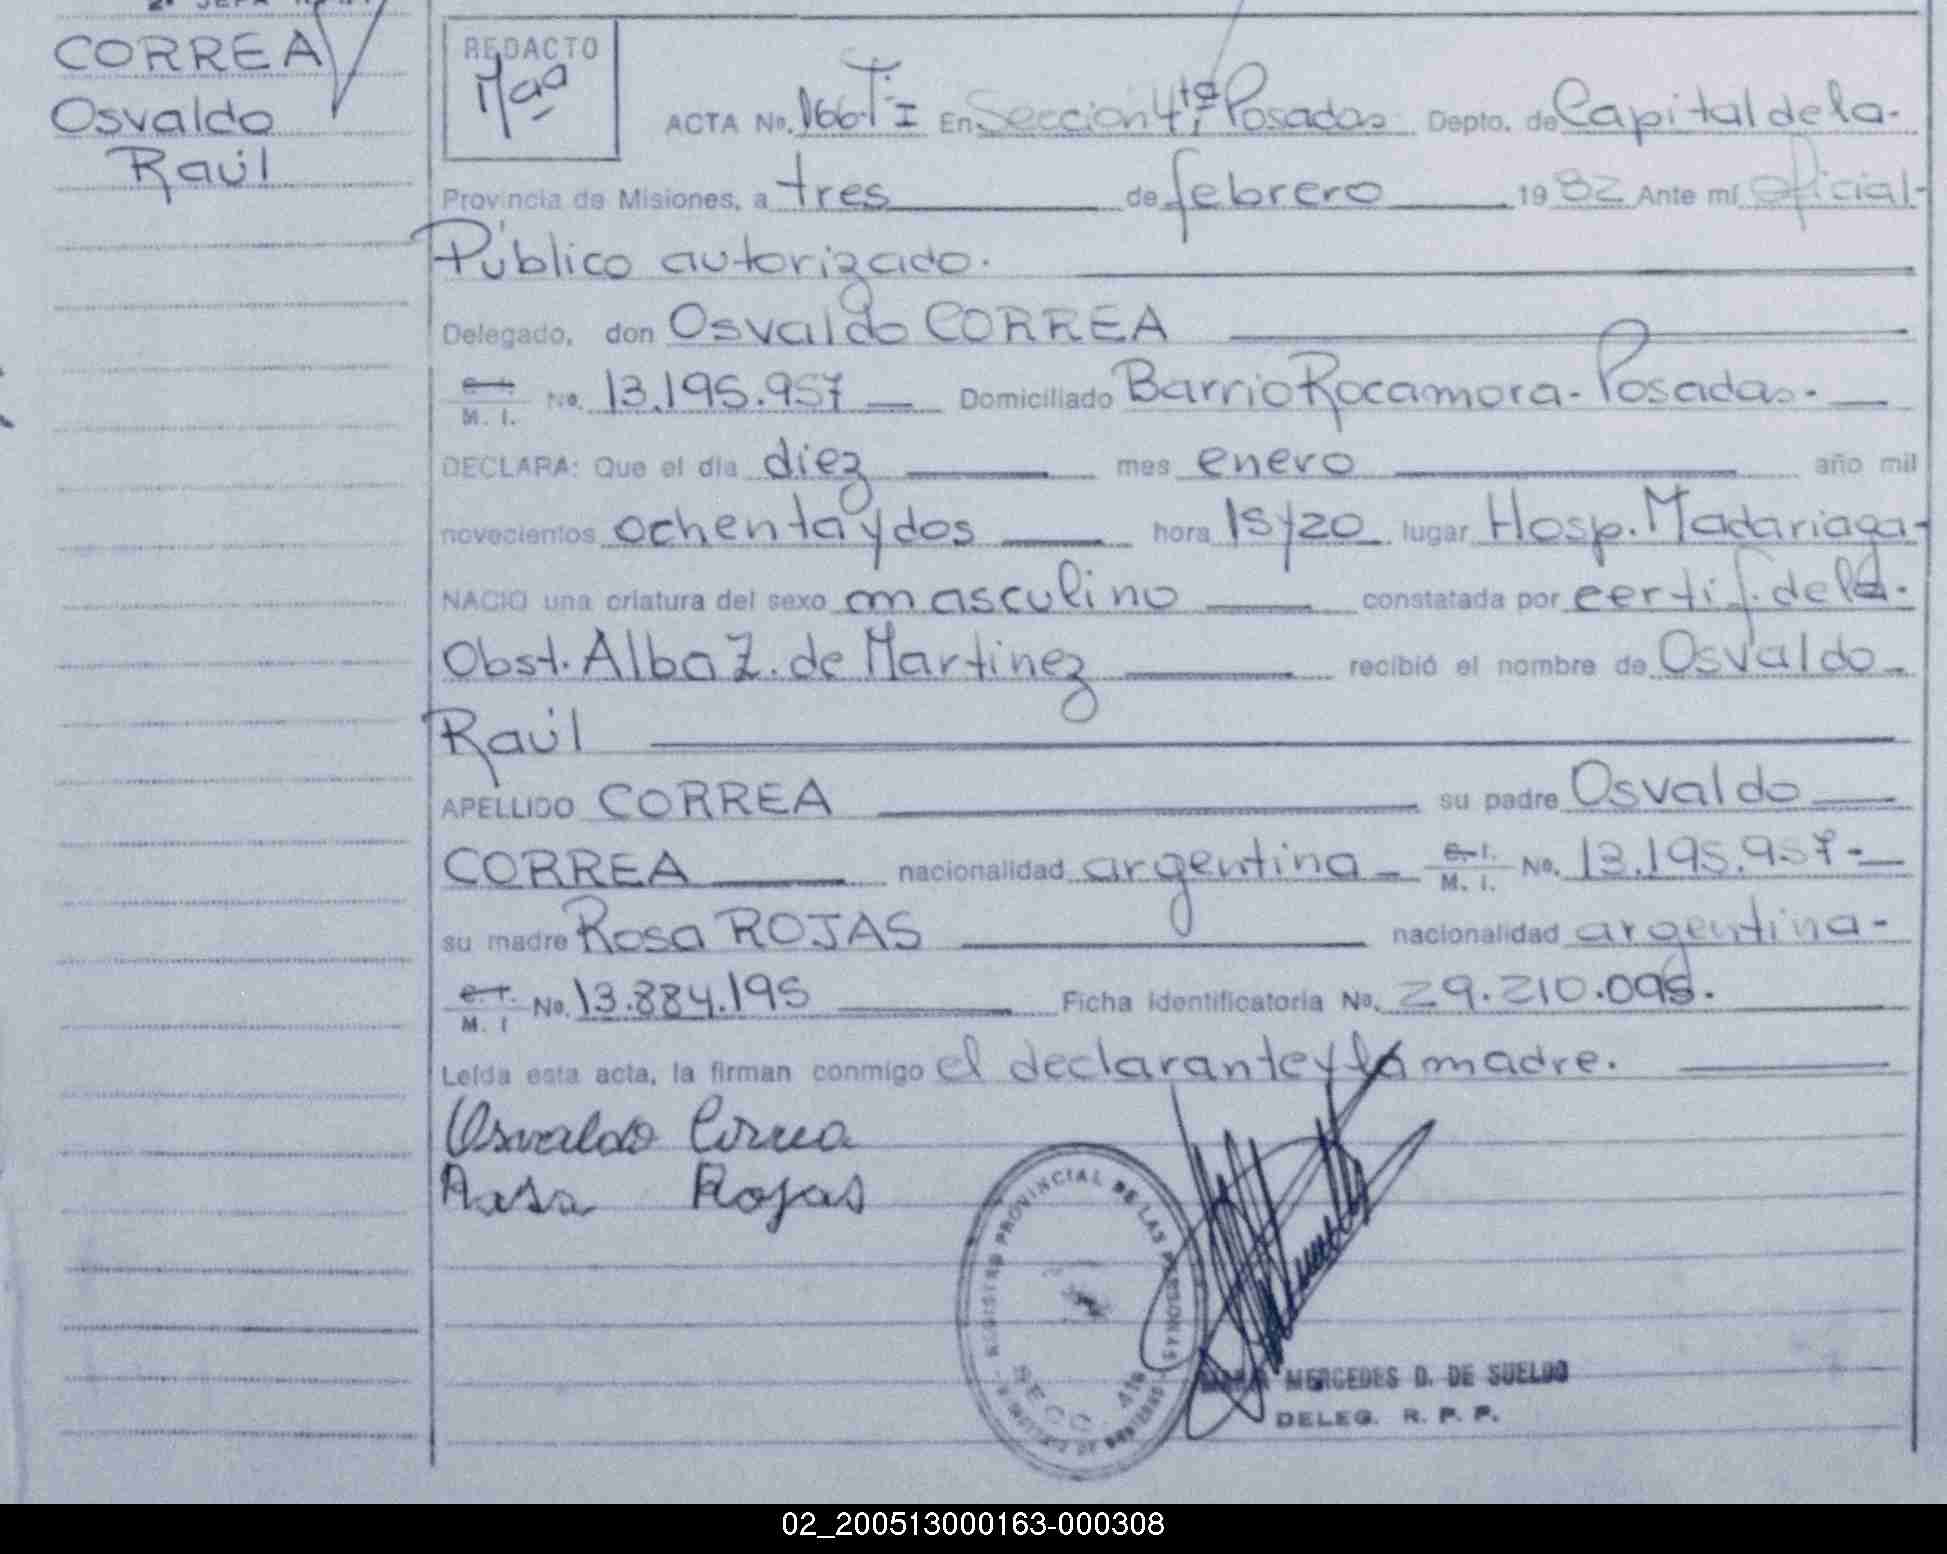 CORREA
Osvaldo
Raúl
REDACTO
ACTA No. 166 T: I En Sección 4ta, Posadas Depto. de Capital de la
Provincia de Misiones, a tres de febrero 1982 Ante mí oficial
Público autorizado.
Delegado, don Osvaldo CORREA
M. I. No. 13.195.957 Domiciliado Barrio Rocamora - Posadas.
DECLARA: Que el día diez mes enero año mil
novecientos ochenta y dos hora 15 y 20 lugar Hosp. Madariaga-
NACIO una criatura del sexo masculino constatada por certif. de la
Obst. Alba Z. de Martinez recibió el nombre de Osvaldo
Raúl
APELLIDO CORREA su padre Osvaldo
CORREA nacionalidad argentina C. I. M. I. No. 13.195.957-
su madre Rosa ROJAS nacionalidad argentina-
C. I. M. I No. 13.884.195 Ficha identificatoria No. 29.210.095.
Leída esta acta, la firman conmigo el declarante y la madre.
Osvaldo Correa
Rosa Rojas
REGISTRO PROVINCIAL DE LAS PERSONAS
SECC. 4ta
MERCEDES D. DE SUELDO
DELEG. R. P. P.
02_200513000163-000308